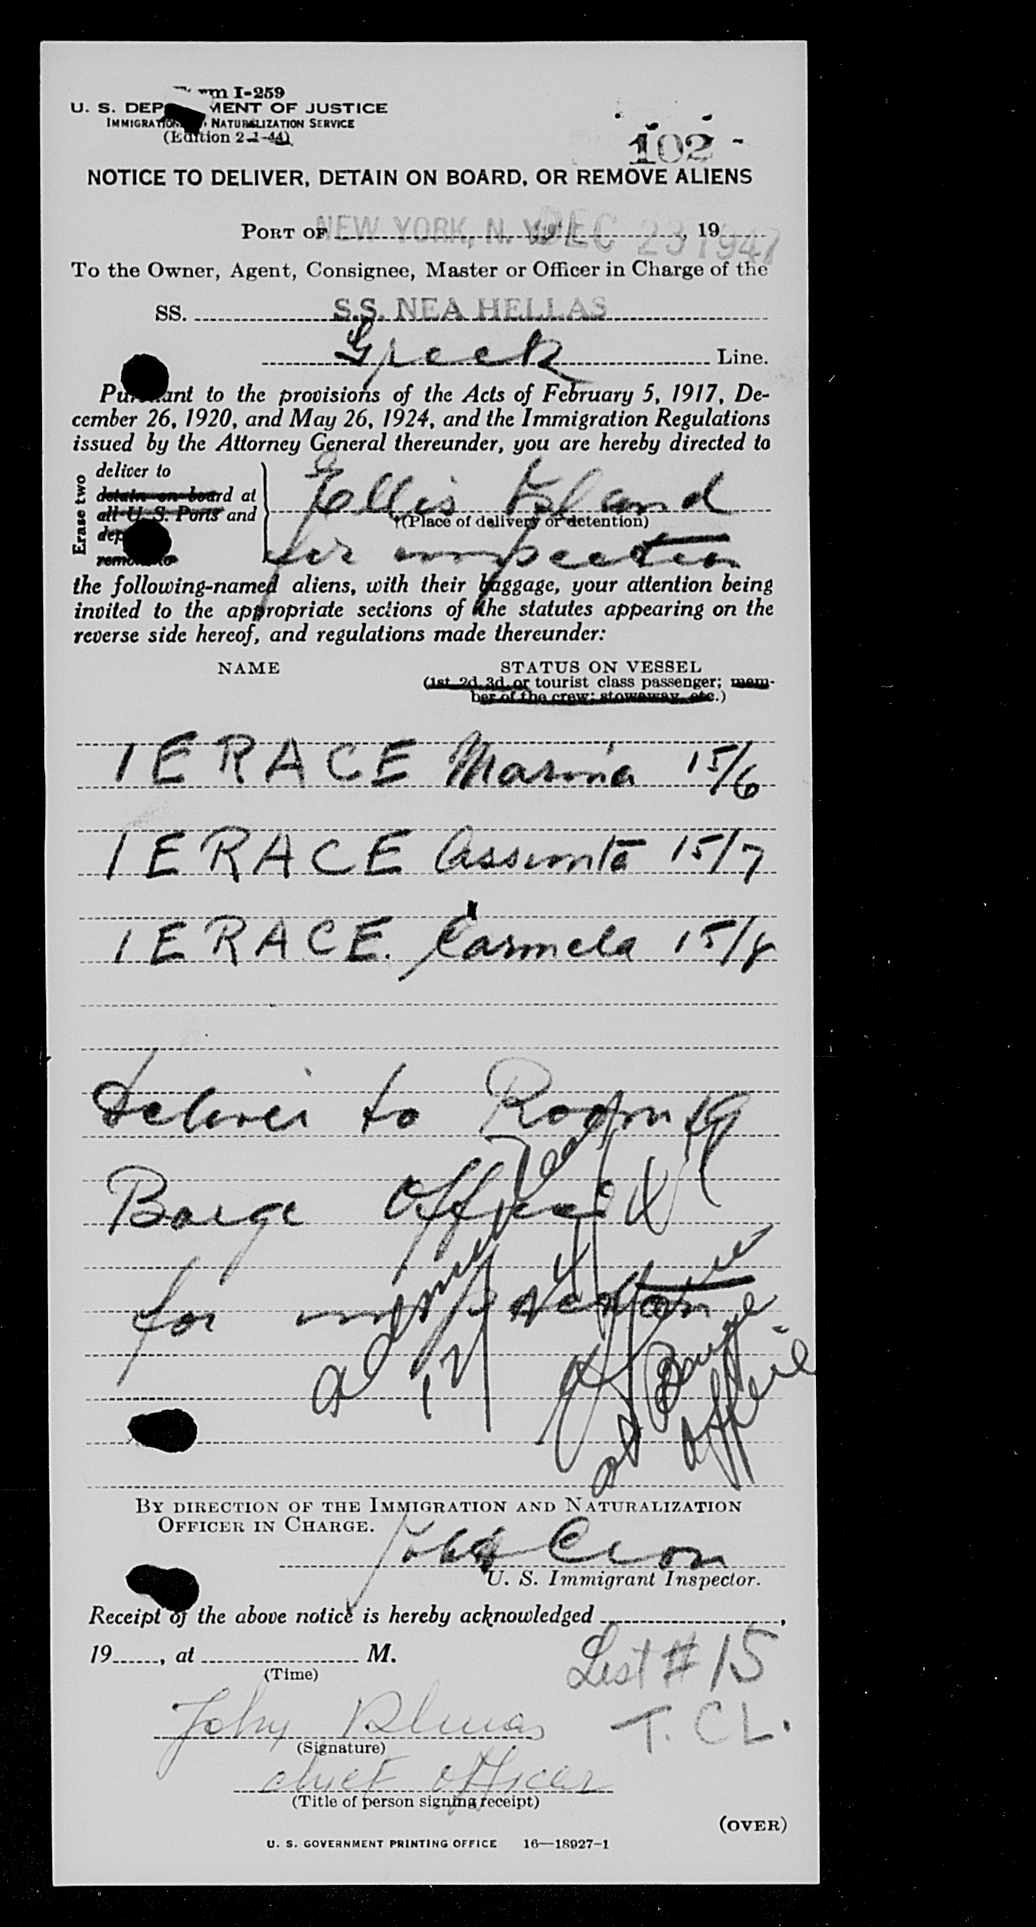 Form I-259
U. S. DEPARTMENT OF JUSTICE
IMMIGRATION AND NATURALIZATION SERVICE
(Edition 2-1-44)
102 -
NOTICE TO DELIVER, DETAIN ON BOARD, OR REMOVE ALIENS
PORT OF NEW YORK, N. Y. DEC 23 1947, 19
To the Owner, Agent, Consignee, Master or Officer in Charge of the
SS. S.S. NEA HELLAS
Greek Line.
Pursuant to the provisions of the Acts of February 5, 1917, De-
cember 26, 1920, and May 26, 1924, and the Immigration Regulations
issued by the Attorney General thereunder, you are hereby directed to
Erase two
deliver to
detain on board at
all U. S. Ports and
remove to
Ellis Island
†(Place of delivery or detention)
for inspection
the following-named aliens, with their baggage, your attention being
invited to the appropriate sections of the statutes appearing on the
reverse side hereof, and regulations made thereunder:
NAME STATUS ON VESSEL
(1st, 2d, 3d, or tourist class passenger; mem-
ber of the crew; stowaway, etc.)
IERACE Marina 15/6
IERACE Assunta 15/7
IERACE. Carmela 15/8
Deliver to Room 19
Barge Office
for inspection
admitted
at Barge
Office
BY DIRECTION OF THE IMMIGRATION AND NATURALIZATION
OFFICER IN CHARGE.
U. S. Immigrant Inspector.
Receipt of the above notice is hereby acknowledged ,
19 , at M.
(Time)
List # 15
T. CL.
(Signature)
chief officer
(Title of person signing receipt)
(OVER)
U. S. GOVERNMENT PRINTING OFFICE 16—18927-1